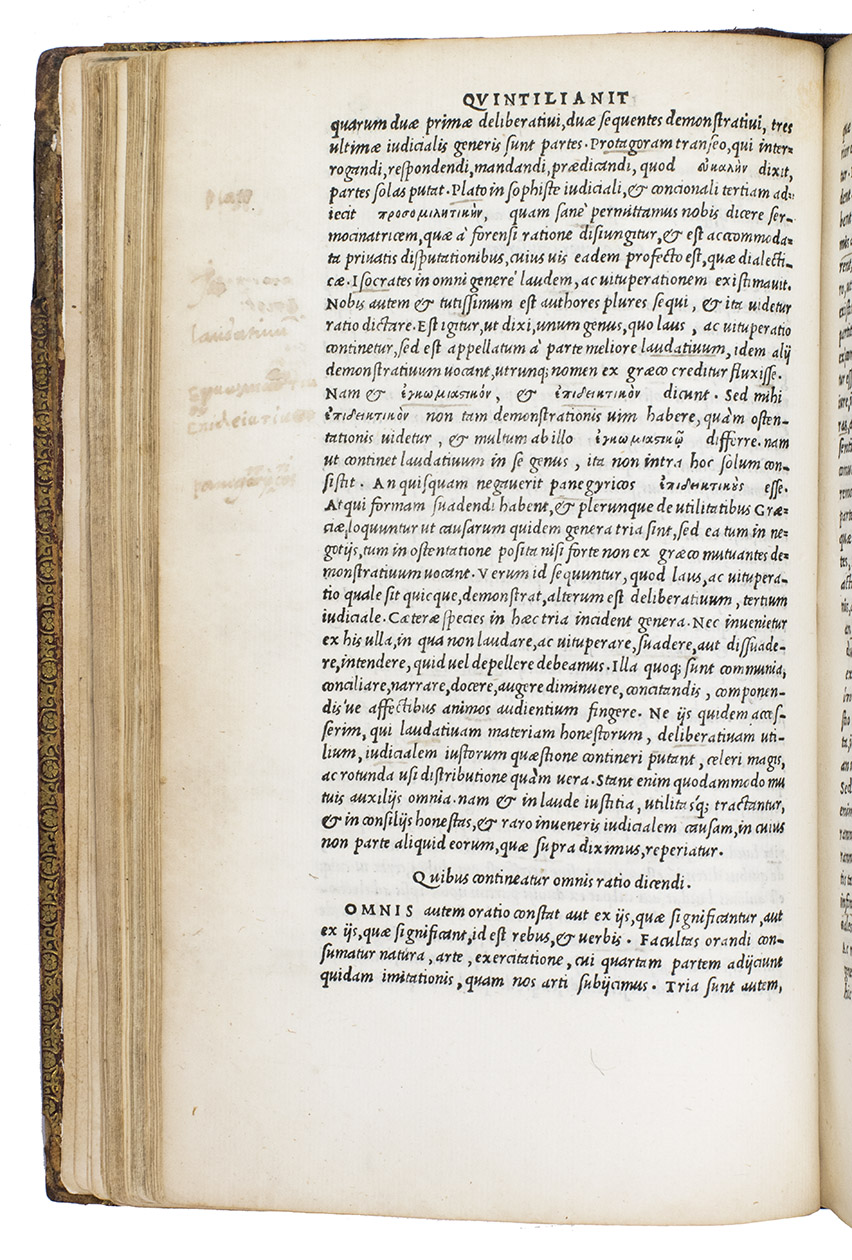 QVINTILIANIT
quarum duæ primæ deliberatiui, duæ sequentes demonstratiui, tres
ultimæ iudicialis generis sunt partes. Protagoram transeo, qui inter-
rogandi, respondendi, mandandi, prædicandi, quod dixit,
partes solas putat. Plato in sophiste iudiciali, & concionali tertiam ad-
iecit προσομιλητικὴν, quam sanè permittamus nobis dicere ser-
mocinatricem, quæ à forensi ratione disiungitur, & est accommoda-
ta priuatis disputationibus, cuius uis eadem profecto est, quæ dialecti-
cæ. Isocrates in omni genere laudem, ac uituperationem existimauit.
Nobis autem & tutissimum est authores plures sequi, & ita uidetur
ratio dictare. Est igitur, ut dixi, unum genus, quo laus, ac uituperatio
continetur, sed est appellatum à parte meliore laudatiuum, idem alij
demonstratiuum uocant, utrunq; nomen ex græco creditur fluxisse.
Nam & ἐγκωμιαστικὸν, & ἐπιδεικτικὸν dicunt. Sed mihi
ἐπιδεικτικὸν non tam demonstrationis uim habere, quàm osten-
tationis uidetur, & multum ab illo ἐγκωμιαστικῷ differre. nam
ut continet laudatiuum in se genus, ita non intra hoc solum con-
sistit. An quisquam negauerit panegyricos ἐπιδεικτικοὺς esse.
Atqui formam suadendi habent, & plerunque de utilitatibus Græ-
ciæ, loquuntur ut causarum quidem genera tria sint, sed ea tum in ne-
gotijs, tum in ostentatione posita nisi forte non ex græco mutuantes de-
monstratiuum uocant. Verum id sequuntur, quod laus, ac uitupera-
tio quale sit quicque, demonstrat, alterum est deliberatiuum, tertium
iudiciale. Cæteræ species in hæc tria incident genera. Nec inuenietur
ex his ulla, in qua non laudare, ac uituperare, suadere, aut dissuade-
re, intendere, quid uel depellere debeamus. Illa quoq; sunt communia,
conciliare, narrare, docere, augere diminuere, concitandis, componen-
dis'ue affectibus animos audientium fingere. Ne ijs quidem acces-
serim, qui laudatiuam materiam honestorum, deliberatiuam uti-
lium, iudicialem iustorum quæstione contineri putant, celeri magis,
ac rotunda usi distributione quàm uera. Stant enim quodammodo mu
tuis auxilijs omnia. nam & in laude iustitia, utilitas'q; tractantur,
& in consilijs honestas, & raro inueneris iudicialem causam, in cuius
non parte aliquid eorum, quæ supra diximus, reperiatur.
Quibus contineatur omnis ratio dicendi.
OMNIS autem oratio constat aut ex ijs, quæ significantur, aut
ex ijs, quæ significant, id est rebus, & uerbis. Facultas orandi con-
sumatur natura, arte, exercitatione, cui quartam partem adijciunt
quidam imitationis, quam nos arti subijcimus. Tria sunt autem,
plato
laudatiuum